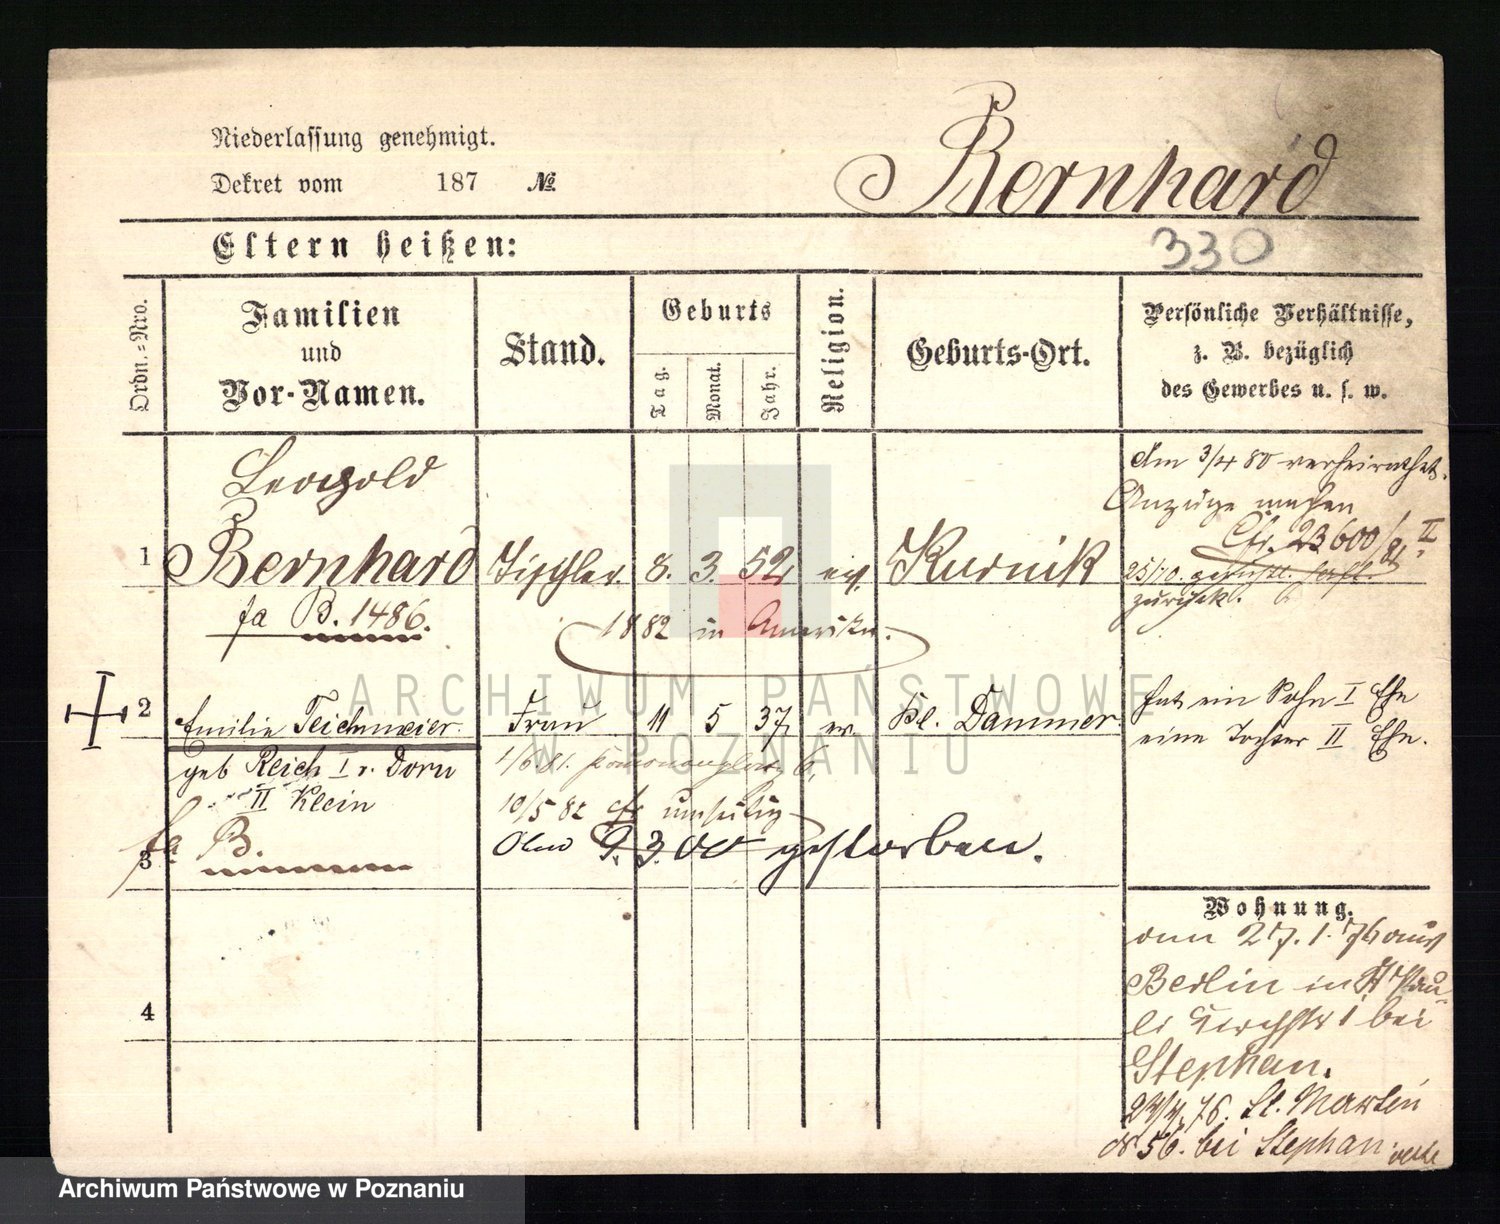 Niederlassung genehmigt.
Dekret vom 187 №
Bernhard
Eltern heißen:
330
Ordn.=Nro.
Familien
und
Vor-Namen.
Stand.
Geburts
Tag.
Monat.
Jahr.
Religion.
Geburts-Ort.
Persönliche Verhältnisse,
z. B. bezüglich
des Gewerbes u. s. w.
Leopold
1 Bernhard Tischler. 8. 3. 52 ev. Kurnik
fa B. 1486.
1882 in Amerika.
Am 3/4 80 verheirathet.
Anzüge
Cfr. 23600/81 II
25/10.
zurück.
2 Emilie Teichmeier Frau 11 5 37 ev. Kl. Dammer
geb Reich I v. Dorn
II Klein
hat ein Sohn I Ehe
eine Tochter II Ehe.
1/6 81.
10/5 82 cfr
3
fa B.
9. 3. 00 gestorben.
Wohnung.
am 27. 1. 76 aus
Berlin in St Pau-
li Kirchstr 1 bei
Stephan.
76. St. Martin
№ 56. bei Stephan
4
ARCHIWUM PAŃSTWOWE
W POZNANIU
Archiwum Państwowe w Poznaniu